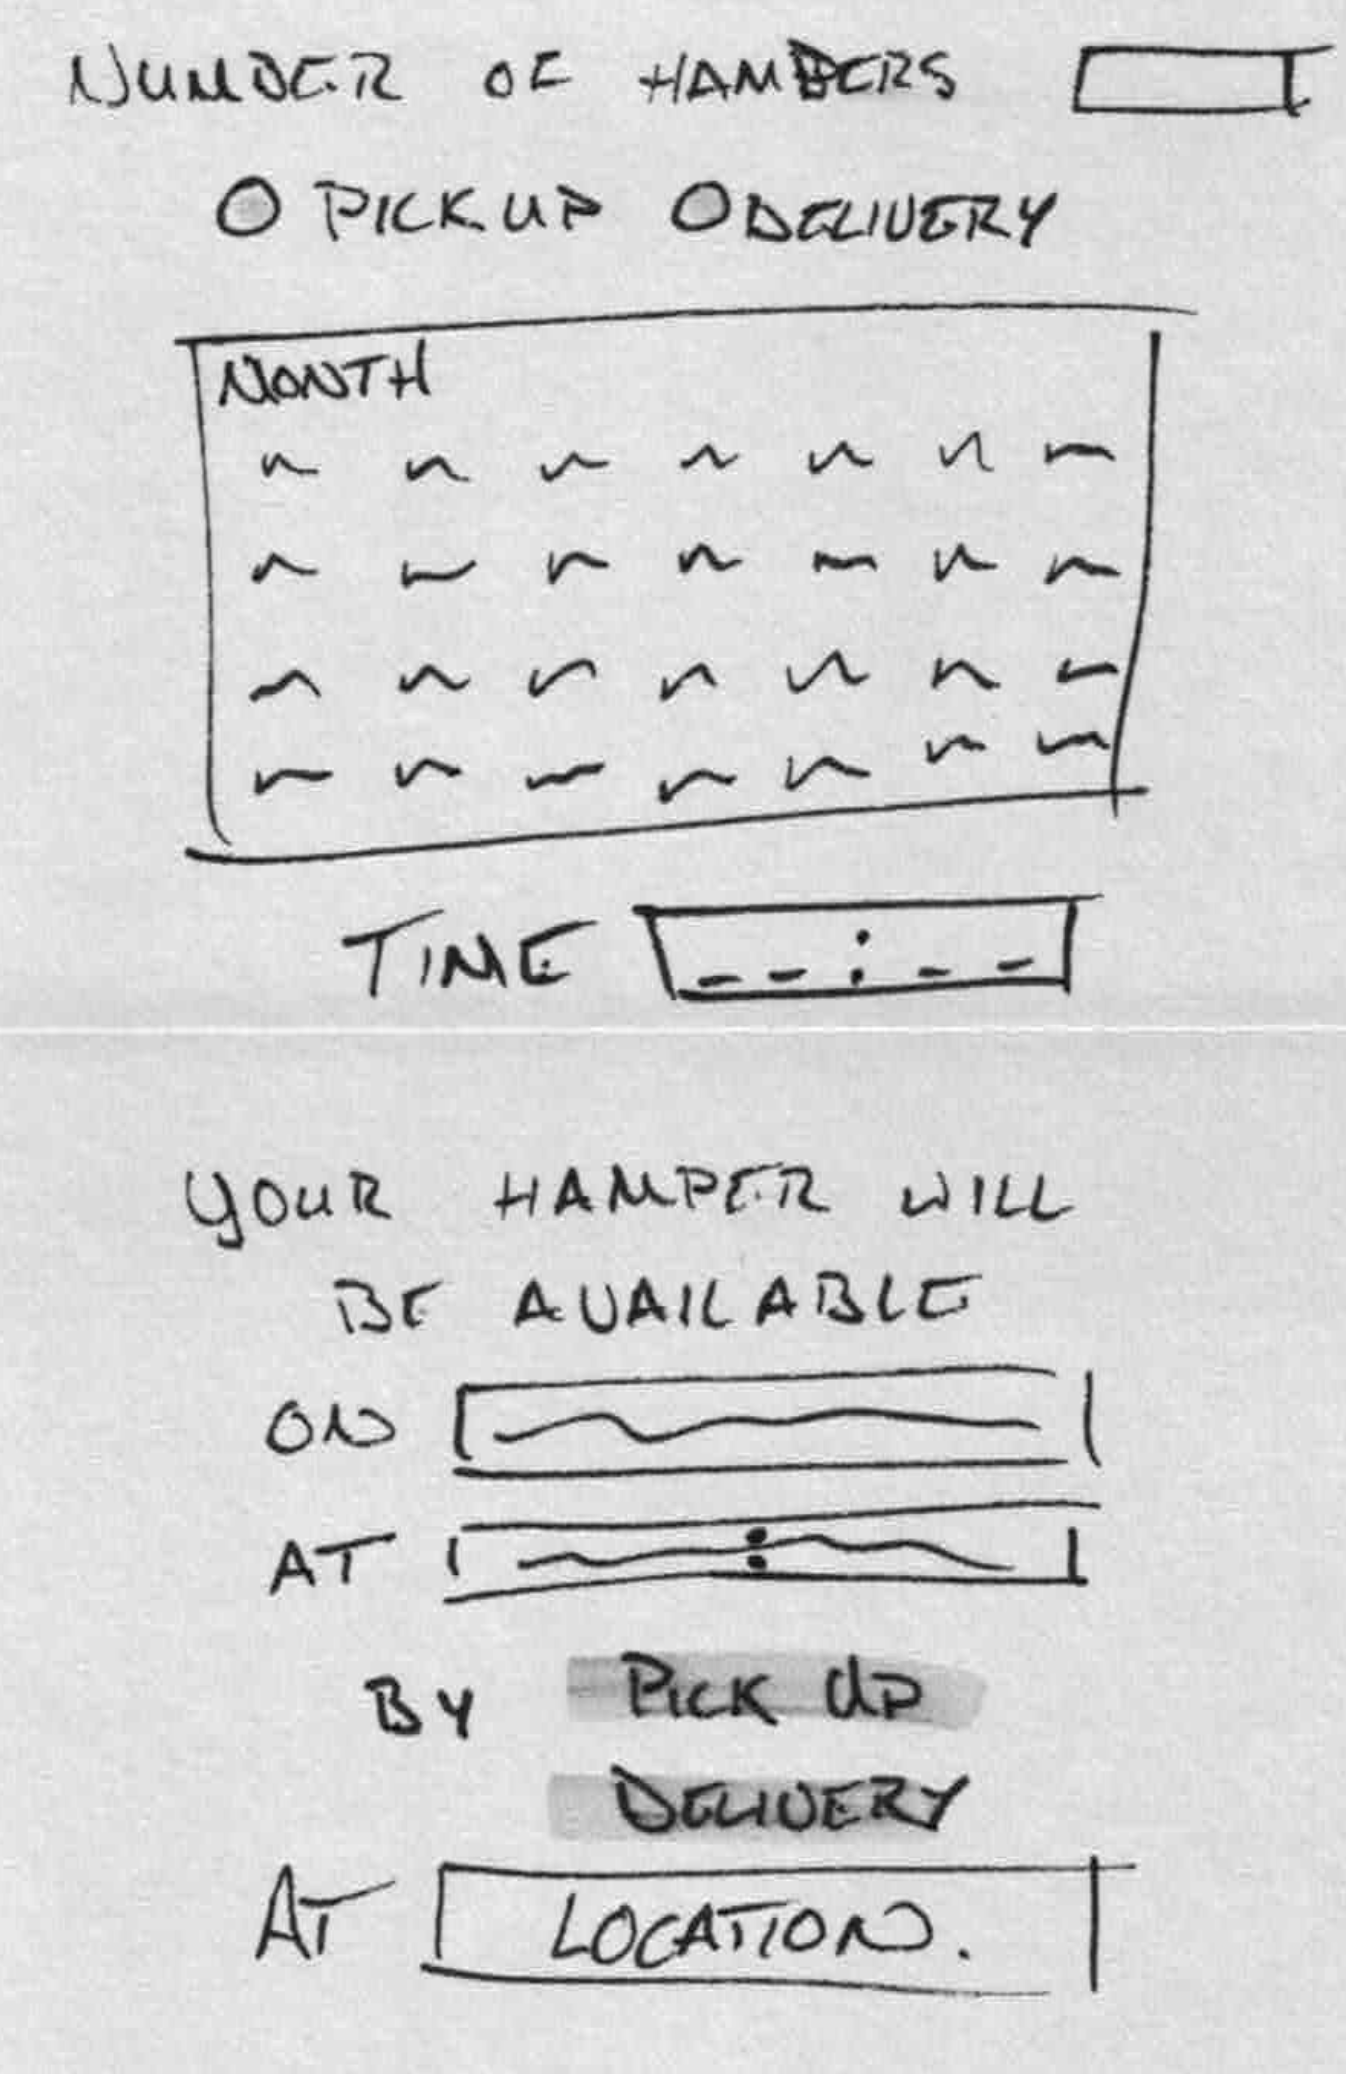 NUMBER OF HAMPERS
PICKUP DELIVERY
MONTH
TIME _ _ : _ _
YOUR HAMPER WILL
BE AVAILABLE
ON
AT :
BY PICK UP
DELIVERY
AT LOCATION.